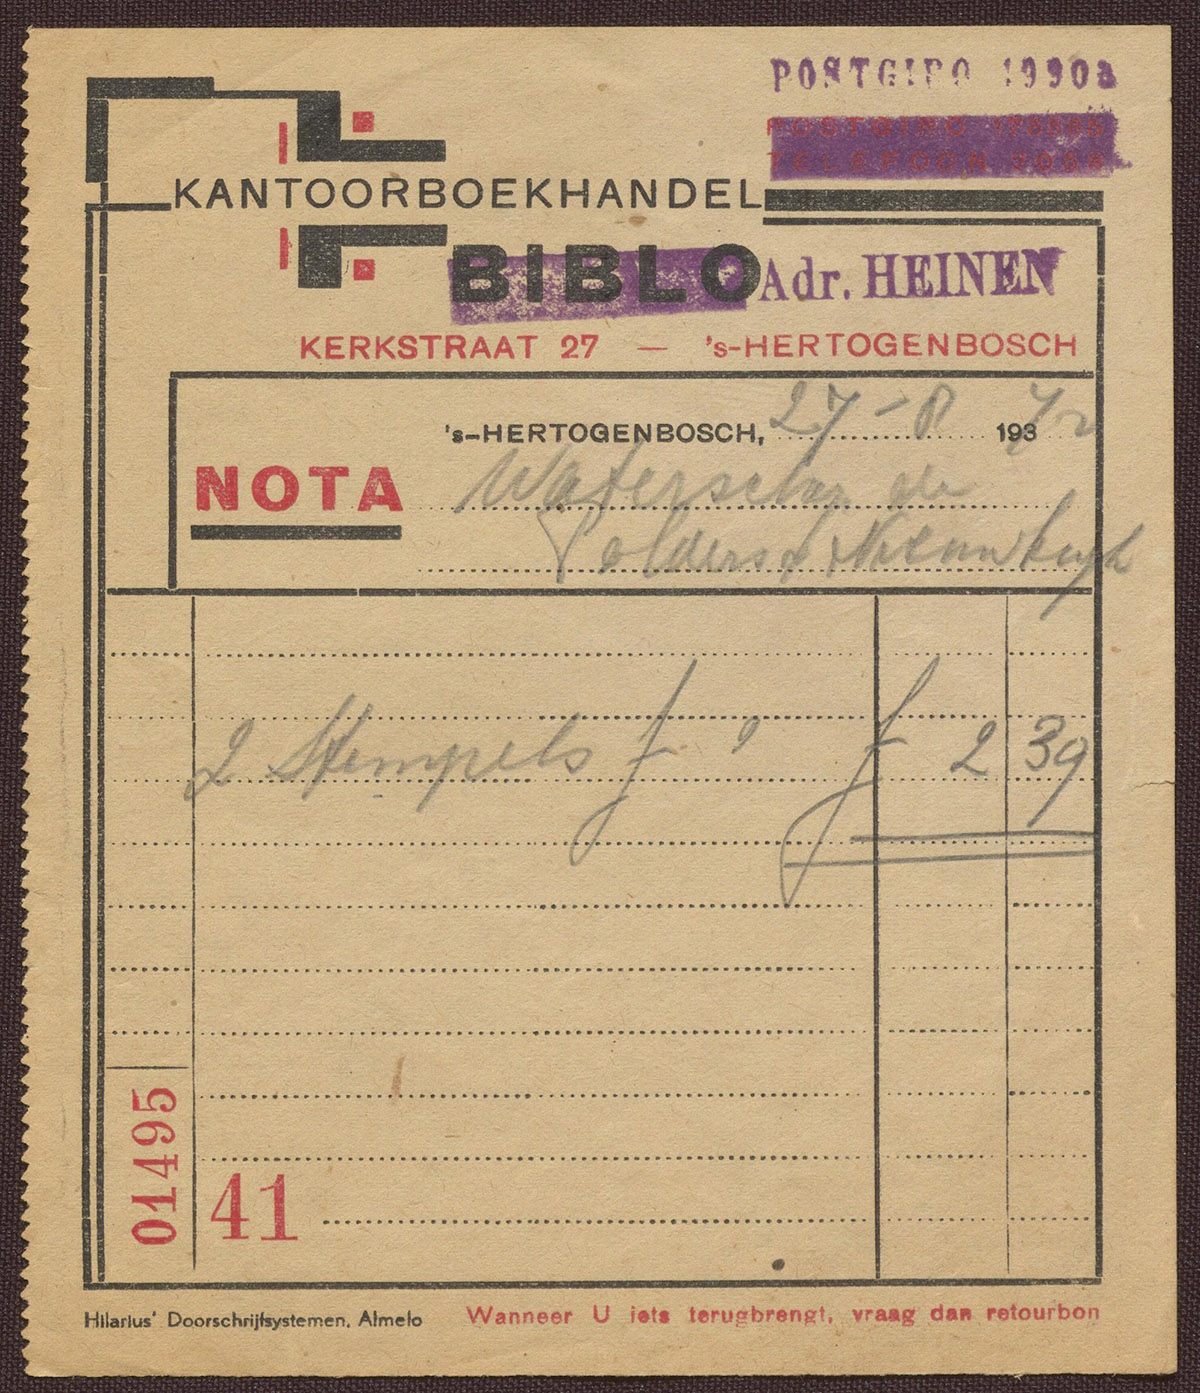 POSTGIRO 19903
KANTOORBOEKHANDEL
BIBLO Adr. HEINEN
KERKSTRAAT 27 — 's-HERTOGENBOSCH
's-HERTOGENBOSCH, 27-8 193
NOTA
Waterschap de
Polders
2 Stempels f f 2 39
01495
41
Hilarius' Doorschrijfsystemen, Almelo Wanneer U iets terugbrengt, vraag dan retourbon